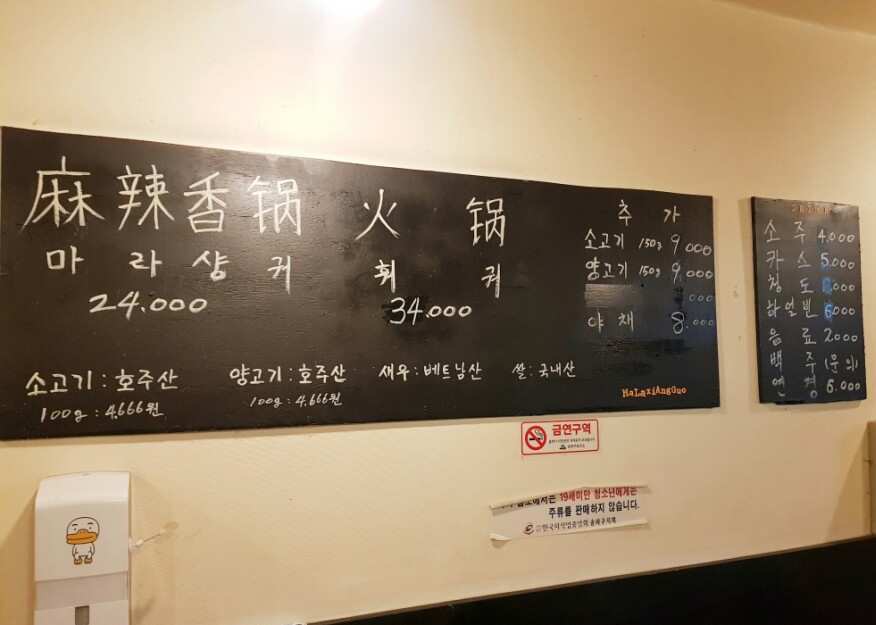 麻辣香锅 火锅
마라샹궈 훠궈
24.000
34.000
추가
소고기 150g 9,000
양고기 150g 9.000
000
야채 8.000
소고기:호주산
100g:4,666원
양고기:호주산
100g:4,666원
새우:베트남산
쌀:국내산
MaLaxiAngGuo
DRINK
소주 4,000
카스 5.000
칭도 ,000
하얼빈 6000
음료 2000
백주(문의)
연경 6.000
금연구역
19세미만 청소년에게는
주류를 판매하지 않습니다.
한국외식업중앙회 송파구지회